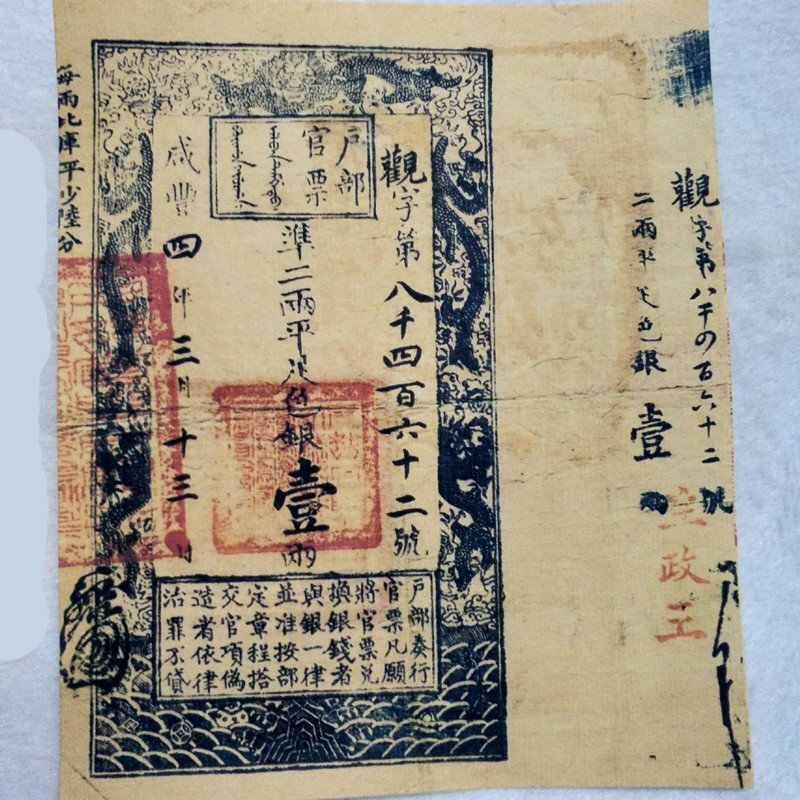 觀字第八千四百六十二號
二兩平足色銀壹兩
户部官票
觀字第八千四百六十二號
準二兩平足色銀壹兩
咸豐四年三月十三日
户部奏行
官票凡願
將官票兑
換銀錢者
與銀一律
並准按部
定章程搭
交官項偽
造者依律
治罪不貸
每兩比庫平少陸分